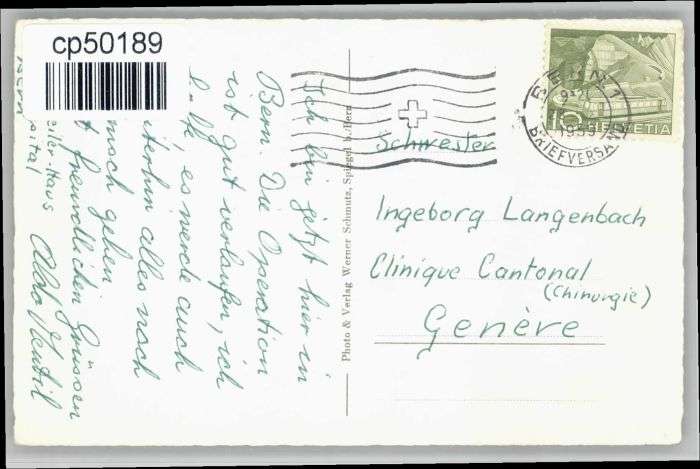 cp50189
Ich bin jetzt hier in
Bern. Die Operation
ist gut verlaufen, ich
es werde auch
alles noch
noch gehen
freundlichen Grüssen
Photo & Verlag Werner Schmutz, Spiegel b./Bern
BERN 1
1955
BRIEFVERSAND
10 HELVETIA
Schwester
Ingeborg Langenbach
Clinique Cantonal
(Chirurgie)
Genève